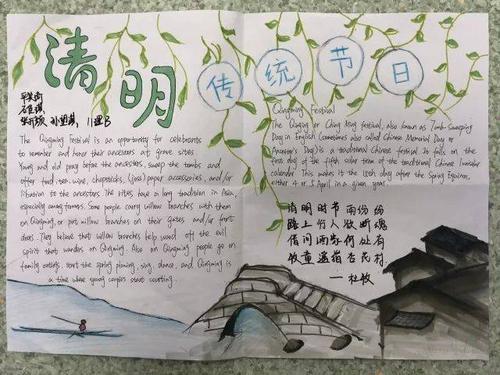 清明
传统节日
The Qingming Festival is an opportunity for celebrants
to remember and honor their ancestors at grave sites
Young and old pray before the ancestors, sweep the tombs and
offer food, tea, wine, chopsticks, (joss) paper accessories, and/or
libation to the ancestors. The rites have a long tradition in Asia,
especially among farmers. Some people carry willow branches with them
on Qingming, or put willow branches on their gates and/or front
doors. They believe that willow branches help ward off the evil
spirit that wanders on Qingming. Also on Qingming people go on
family outings, start the spring plowing, sing, dance, and Qingming is
a time where young couples start courting.
Qingming Festival
The Qingming or Ching Ming festival, also known as Tomb-Sweeping
Day in English (sometimes also called Chinese Memorial Day or
Ancestor's Day) is a traditional Chinese festival. It falls on the
first day of the fifth solar term of the traditional Chinese lunisolar
calendar. This makes it the 15th day after the Spring Equinox,
either 4 or 5 April in a given year
清明时节雨纷纷
路上行人欲断魂
借问酒家何处有
牧童遥指杏花村
—杜牧